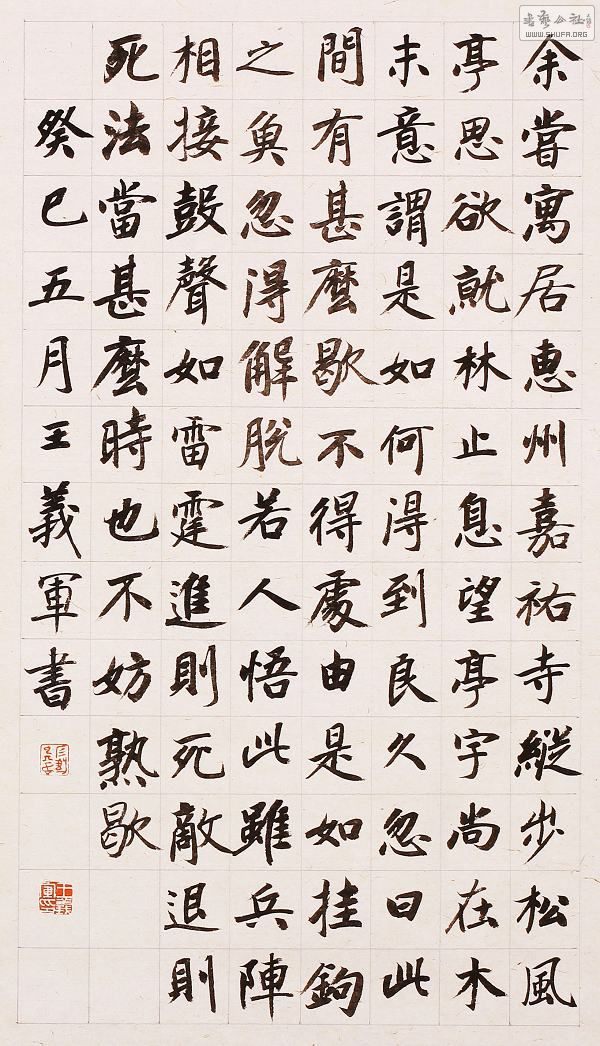 余嘗寓居惠州嘉祐寺縱步松風
亭思欲就林止息望亭宇尚在木
末意謂是如何得到良久忽曰此
間有甚麼歇不得處由是如挂鉤
之魚忽得解脫若人悟此雖兵陣
相接鼓聲如雷霆進則死敵退則
死法當甚麼時也不妨熟歇
癸巳五月王義軍書
www.SHUFA.ORG